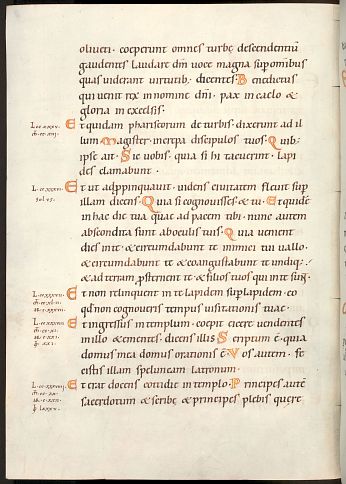 oliueti · coeperunt omnes turbę descendentiū
gaudentes laudare dm̄ uoce magna sup omnibus
quas uiderant uirtutib; dicentes · Benedictus
qui uenit rex in nomine dn̄i · pax in caelo &
gloria in excelsis ·
Et quidam phariseorum de turbis · dixerunt ad il
lum · Magister increpa discipulos tuos · Quib;
ipse ait · Dico uobis · quia si hi tacuerint · lapi
des clamabunt ·
Et ut adppinquauit · uidens ciuitatem fleuit sup
illam dicens · Quia si cognouisses & tu · Et quidē
in hac die tua quae ad pacem tibi · nunc autem
abscondita sunt ab oculis tuis · Quia uenient
dies in te · & circumdabunt te inimici tui uallo
& circumdabunt te & coangustabunt te undiq;
& ad terram psternent te · & filios tuos qui in te sunt ·
Et non relinquent in te lapidem sup lapidem · eo
qd non cognoueris tempus uisitationis tuae ·
Et ingressus in templum · coepit eicere uendentes
in illo & ementes · dicens illis · Scriptum ē · quia
domus mea domus orationis ē · Vos autem · fe
cistis illam speluncam latronum ·
Et erat docens cottidie in templo · Principes autē
sacerdotum & scribę & principes plebis quere